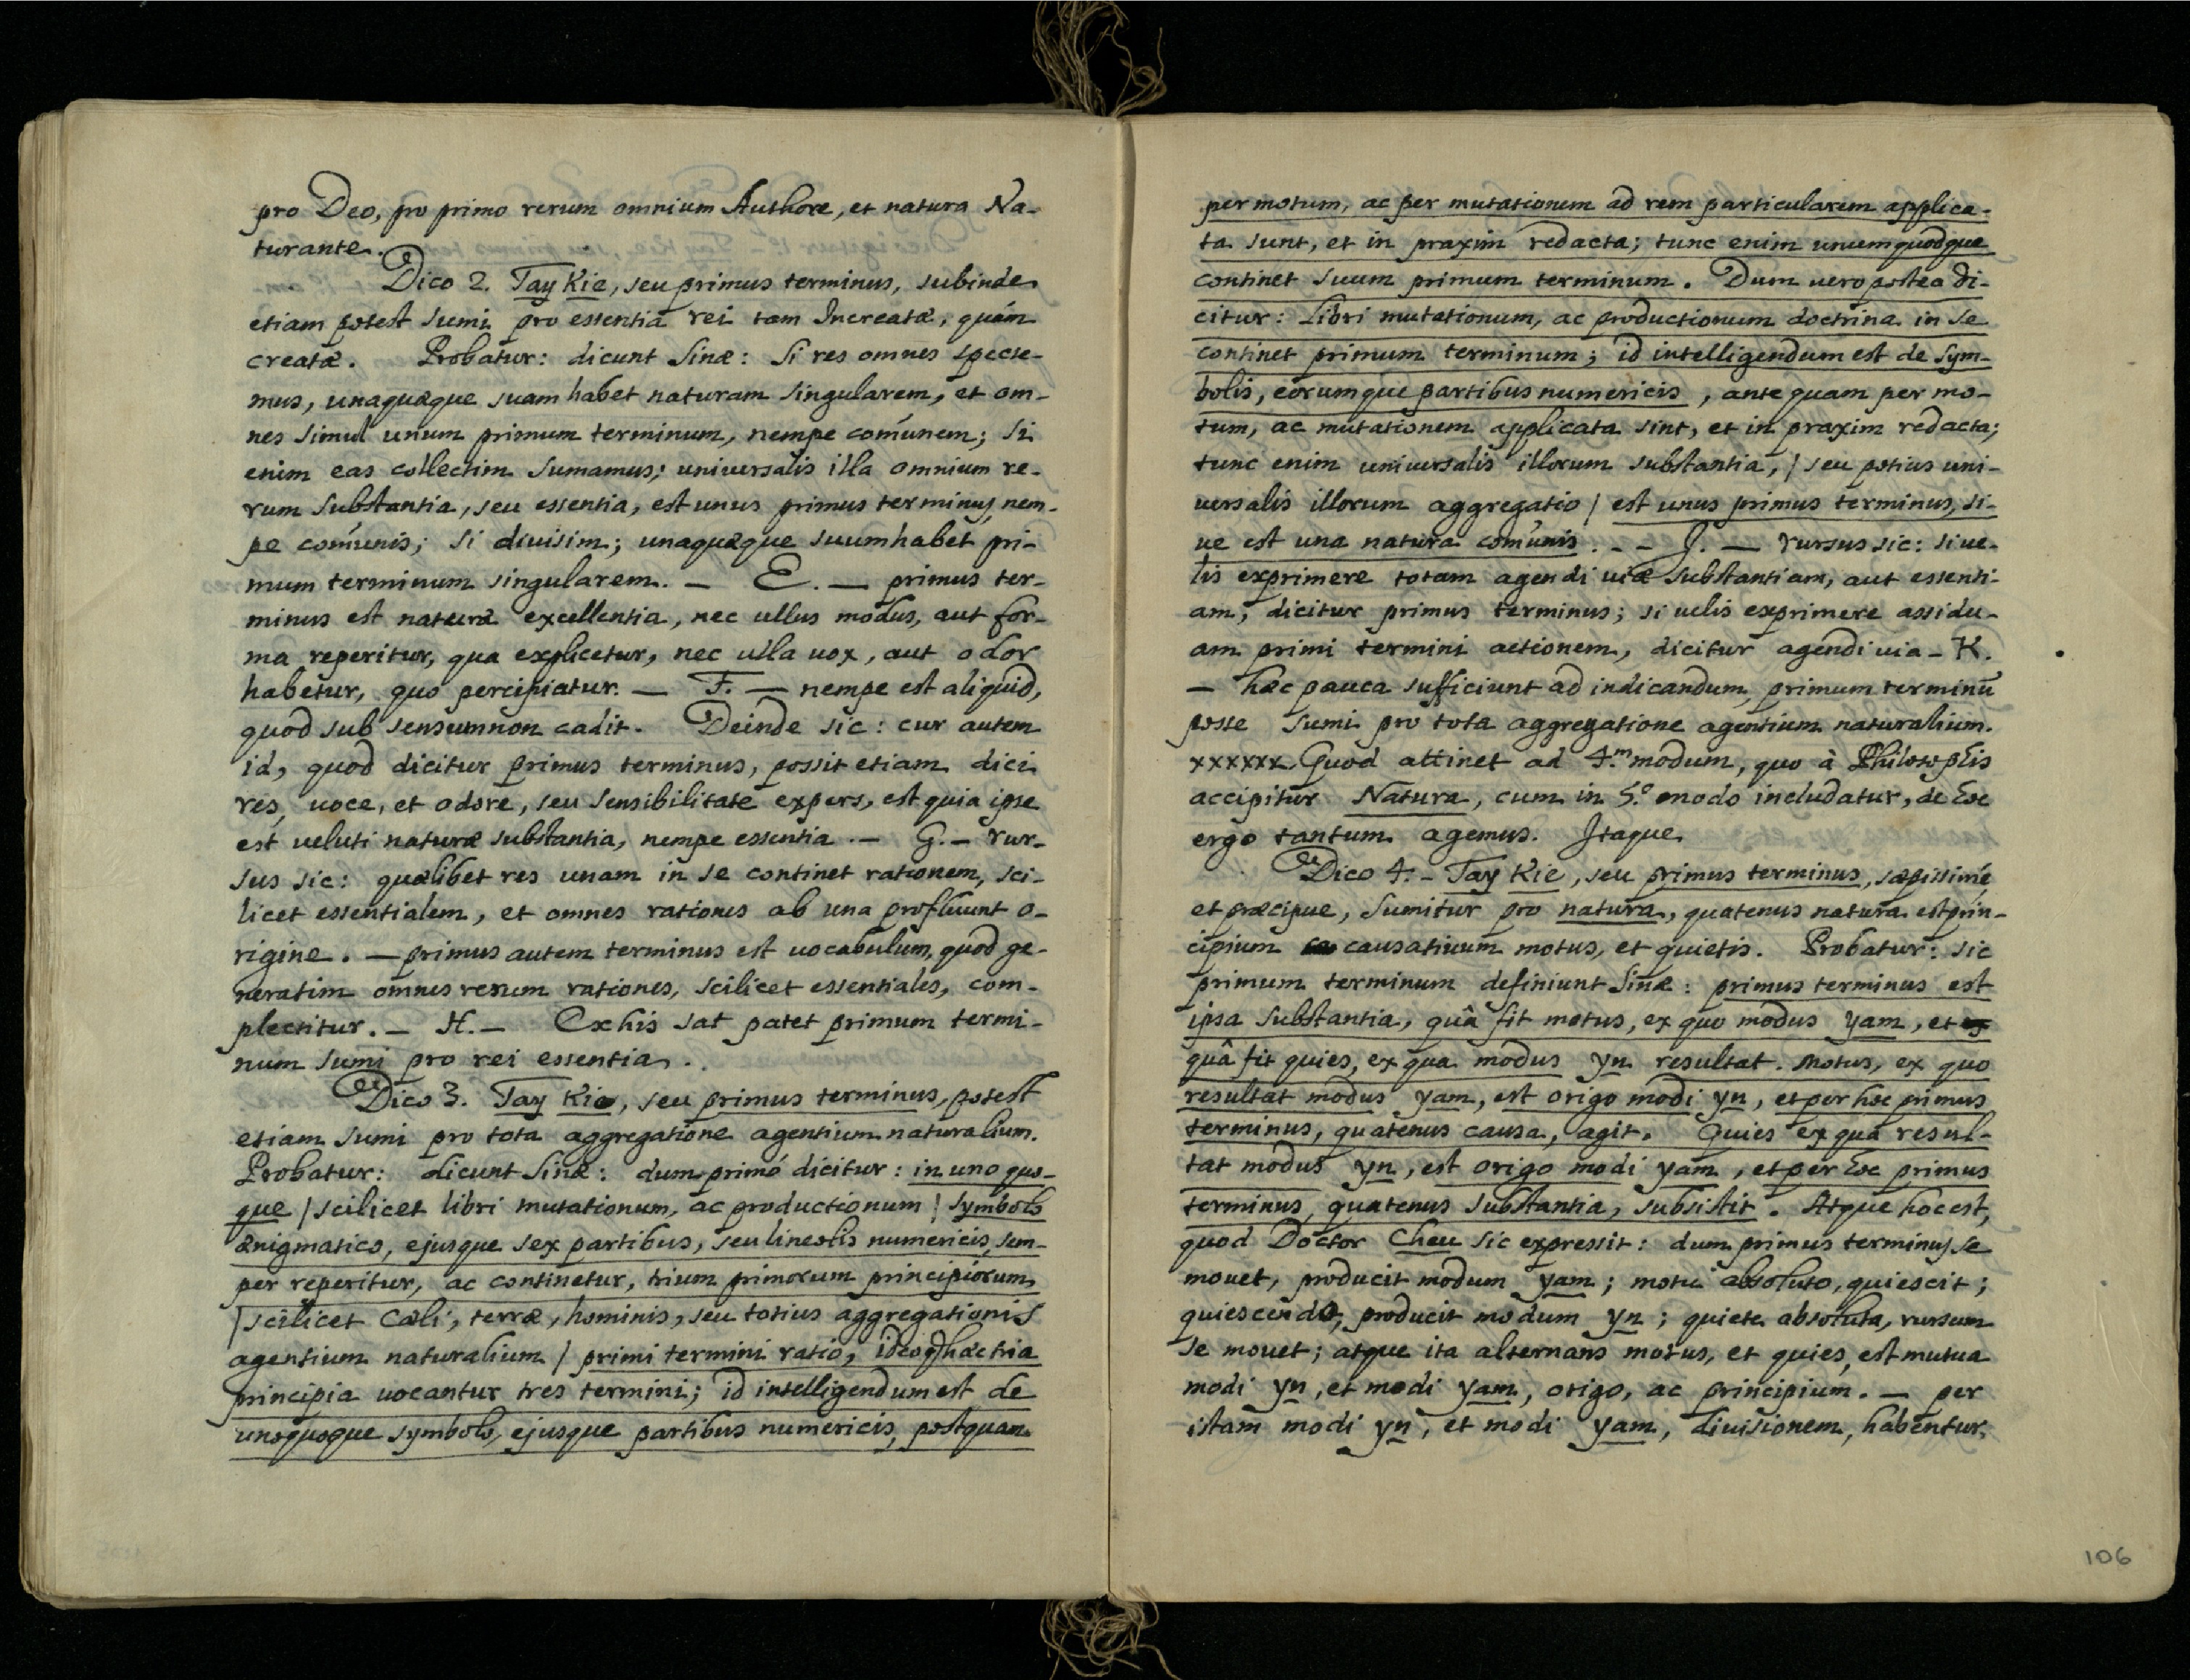 pro Deo, pro primo rerum omnium Authore, et natura Na-
turante.
Dico 2. Tay Kie, seu primus terminus, subinde
etiam potest sumi pro essentia rei tam Increatæ, quám
creatæ. Probatur: dicunt Sinæ: Si res omnes specte-
mus, unaquæque suam habet naturam singularem, et om-
nes simul unum primum terminum, nempe com̃unem; si
enim eas collectim sumamus; universalis illa omnium re-
rum substantia, seu essentia, est unus primus terminus, nem-
pe com̃unis; si divisim; unaquæque suum habet pri-
mum terminum singularem. — E. — primus ter-
minus est naturæ excellentia, nec ullus modus, aut for-
ma reperitur, qua explicetur, nec ulla uox, aut odor
habetur, quo percipiatur. — F. — nempe est aliquid,
quod sub sensum non cadit. Deinde sic: cur autem
id, quod dicitur primus terminus, possit etiam dici
res, uoce, et odore, seu sensibilitate expers, est quia ipse
est ueluti naturæ substantia, nempe essentia. — G. — rur-
sus sic: quælibet res unam in se continet rationem, sci-
licet essentialem, et omnes rationes ab una profluunt o-
rigine. — primus autem terminus est uocabulum, quod ge-
neratim omnes rerum rationes, scilicet essentiales, com-
plectitur. — H. — Ex his sat patet primum termi-
num sumi pro rei essentia.
Dico 3. Tay Kie, seu primus terminus, potest
etiam sumi pro tota aggregatione agentium naturalium.
Probatur: dicunt Sinæ: dum primó dicitur: in uno quo-
que / scilicet libri mutationum, ac productionum / symbolo
ænigmatico, ejusque sex partibus, seu lineolis numericis, sem-
per reperitur, ac continetur, trium primorum principiorum
/ scilicet Cæli, terræ, hominis, seu totius aggregationis
agentium naturalium / primi termini ratio, ideoq̃ hæc tria
principia uocantur tres termini; id intelligendum est de
unoquoque symbolo, ejusque partibus numericis, postquam
per motum, ac per mutationem ad rem particularem applica-
ta sunt, et in praxim redacta; tunc enim unumquodque
continet suum primum terminum. Dum uero postea di-
citur: Libri mutationum, ac productionum doctrina in se
continet primum terminum; id intelligendum est de sym-
bolis, eorumque partibus numericis, ante quam per mo-
tum, ac mutationem applicata sint, et in praxim redacta;
tunc enim universalis illorum substantia, / seu potius uni-
uersalis illorum aggregatio / est unus primus terminus, si-
ue est una natura com̃unis. - - J. — rursus sic: si ue-
lis exprimere totam agendi uiæ substantiam, aut essenti-
am, dicitur primus terminus; si uelis exprimere assidu-
am primi termini actionem, dicitur agendi uia - K.
— hæc pauca sufficiunt ad indicandum, primum terminũ
posse sumi pro tota aggregatione agentium naturalium.
xxxxxx Quod attinet ad 4.m modum, quo à Philosophis
accipitur Natura, cum in 5.o modo includatur, de hoc
ergo tantum agemus. Itaque
Dico 4. - Tay Kie, seu primus terminus, sæpissimé,
et præcipue, sumitur pro natura, quatenus natura est prin-
cipium causatiuum motus, et quietis. Probatur: sic
primum terminum definiunt Sinæ: primus terminus est
ipsa substantia, quâ fit motus, ex quo modus yam, et
quâ fit quies, ex qua modus yn resultat. Motus, ex quo
resultat modus yam, est origo modi yn, et per hoc primus
terminus, quatenus causa, agit. Quies ex qua resul-
tat modus yn, est origo modi yam, et per hoc primus
terminus, quatenus substantia, subsistit. Atque hoc est,
quod Doctor Cheu sic expressit: dum primus terminus se
mouet, producit modum yam; motu absoluto, quiescit;
quiescendo, producit modum yn; quiete absoluta, rursum
se mouet; atque ita alternans motus, et quies, est mutua
modi yn, et modi yam, origo, ac principium. — per
istam modi yn, et modi yam, diuisionem, habentur,
106